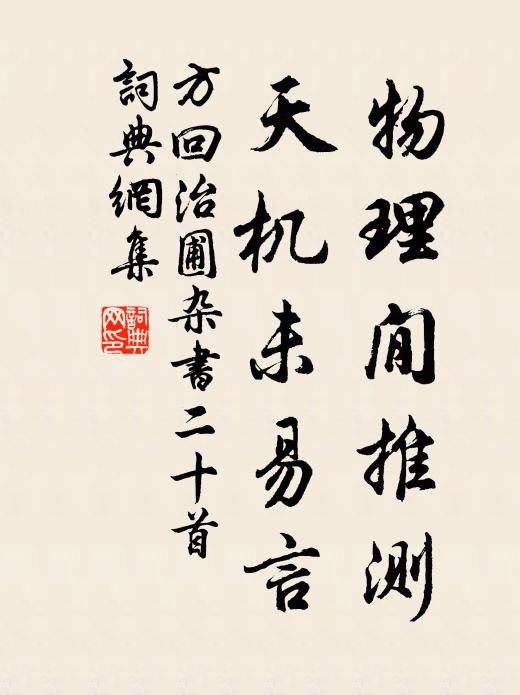 物理间推测
天机未易言
方回治圃杂书二十首
詞典網集
詞典网印